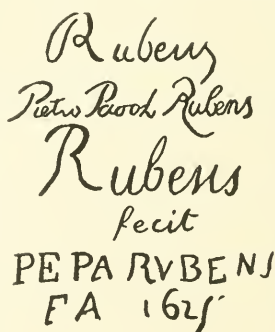 Rubens
Pietro Paool Rubens
Rubens
fecit
PE PA RVBENS
FA 1625